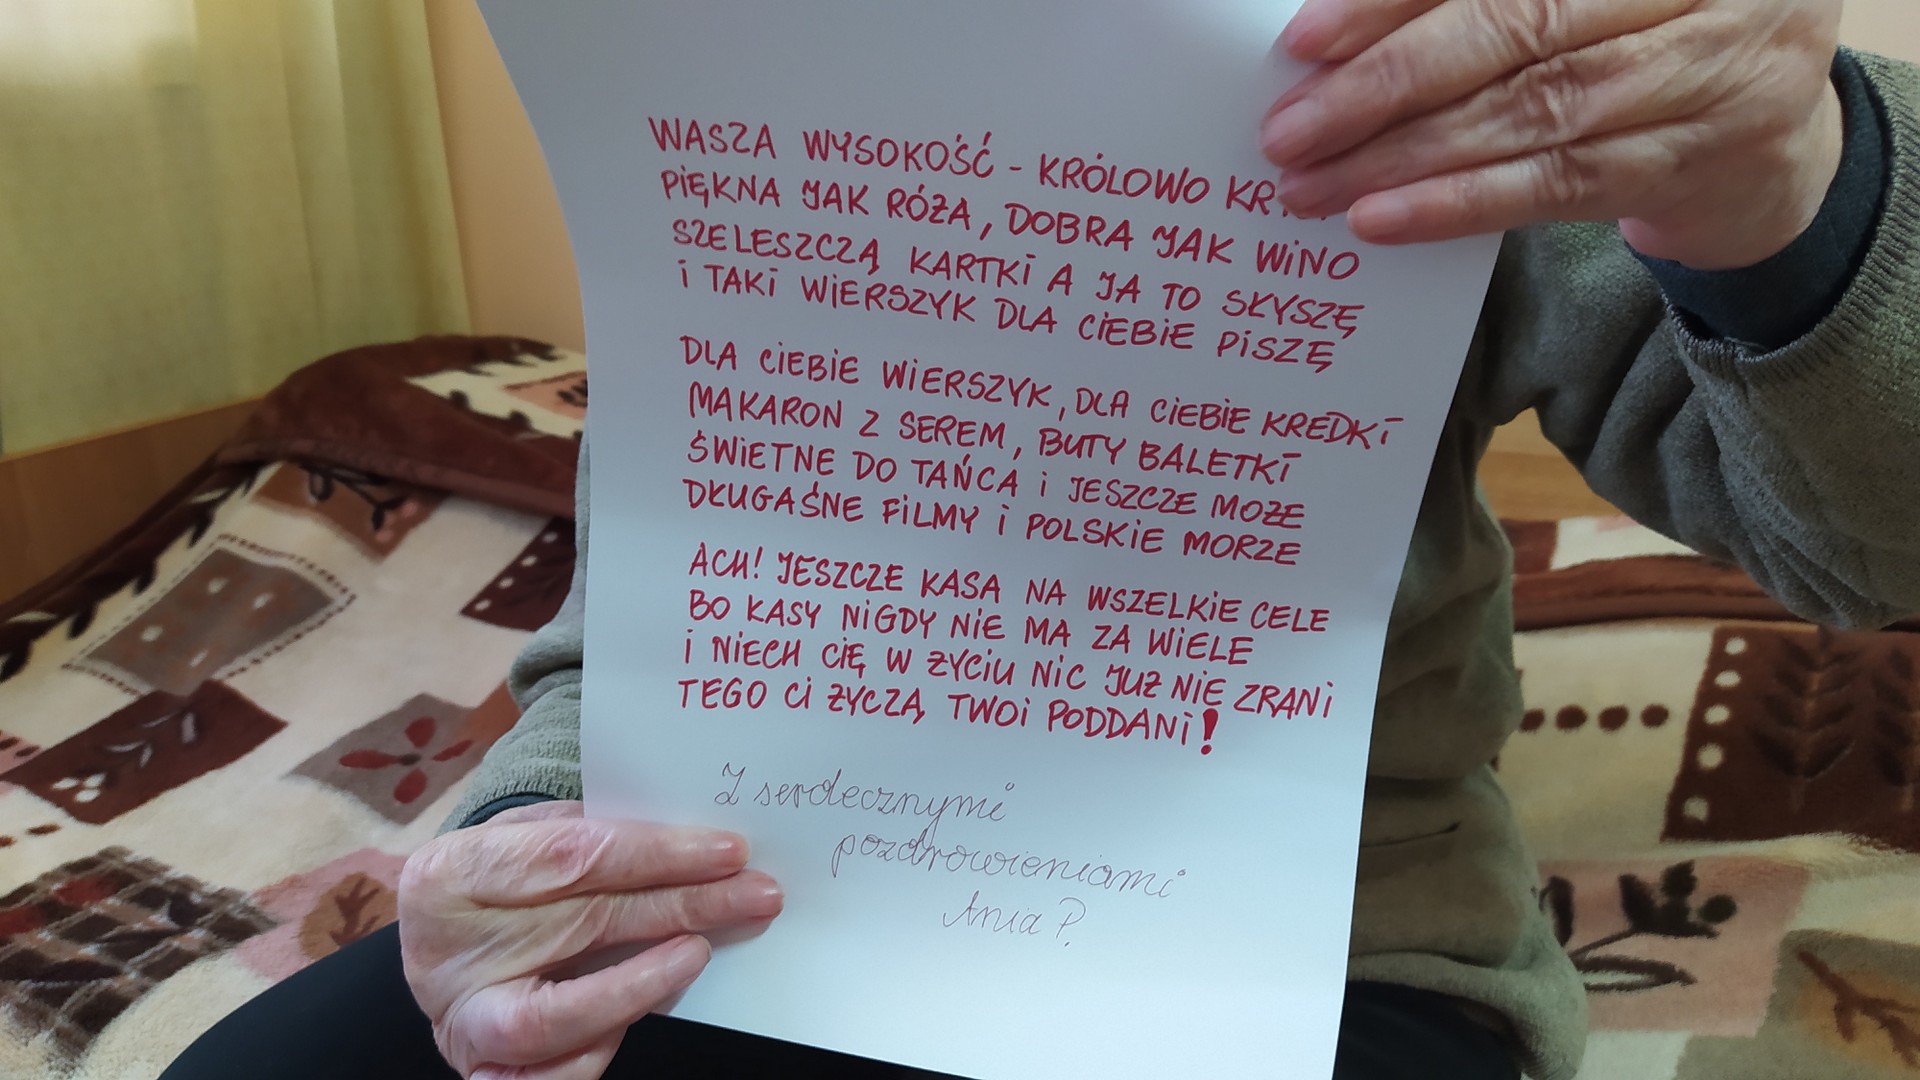 WASZA WYSOKOŚĆ - KRÓLOWO
PIĘKNA JAK RÓŻA, DOBRA JAK WINO
SZELESZCZĄ KARTKI A JA TO SŁYSZĘ
I TAKI WIERSZYK DLA CIEBIE PISZĘ
DLA CIEBIE WIERSZYK, DLA CIEBIE KREDKI
MAKARON Z SEREM, BUTY BALETKI
ŚWIETNE DO TAŃCA I JESZCZE MOŻE
DŁUGAŚNE FILMY I POLSKIE MORZE
ACH! JESZCZE KASA NA WSZELKIE CELE
BO KASY NIGDY NIE MA ZA WIELE
I NIECH CIĘ W ŻYCIU NIC JUŻ NIE ZRANI
TEGO CI ŻYCZĄ TWOI PODDANI!
Z serdecznymi
pozdrowieniami
Ania P.